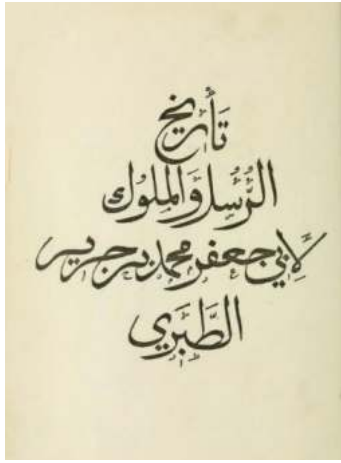 تَأريخ
الرُّسُل وَالمُلوك
لِأَبي جعفر محمد بن جرير
الطَّبَري